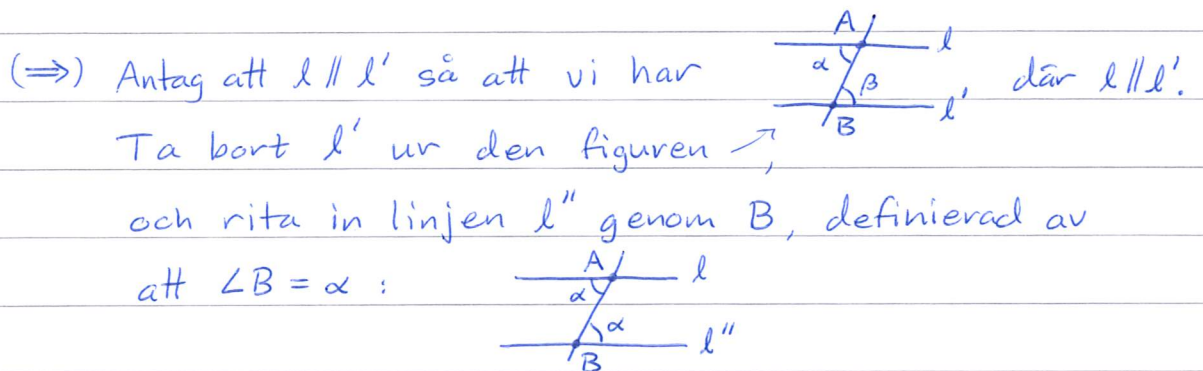 A l
(⇒) Antag att l // l' så att vi har α β , där l // l'.
B l'
Ta bort l' ur den figuren ↗,
och rita in linjen l'' genom B, definierad av
att ∠B = α :
A l
α
α
B l''